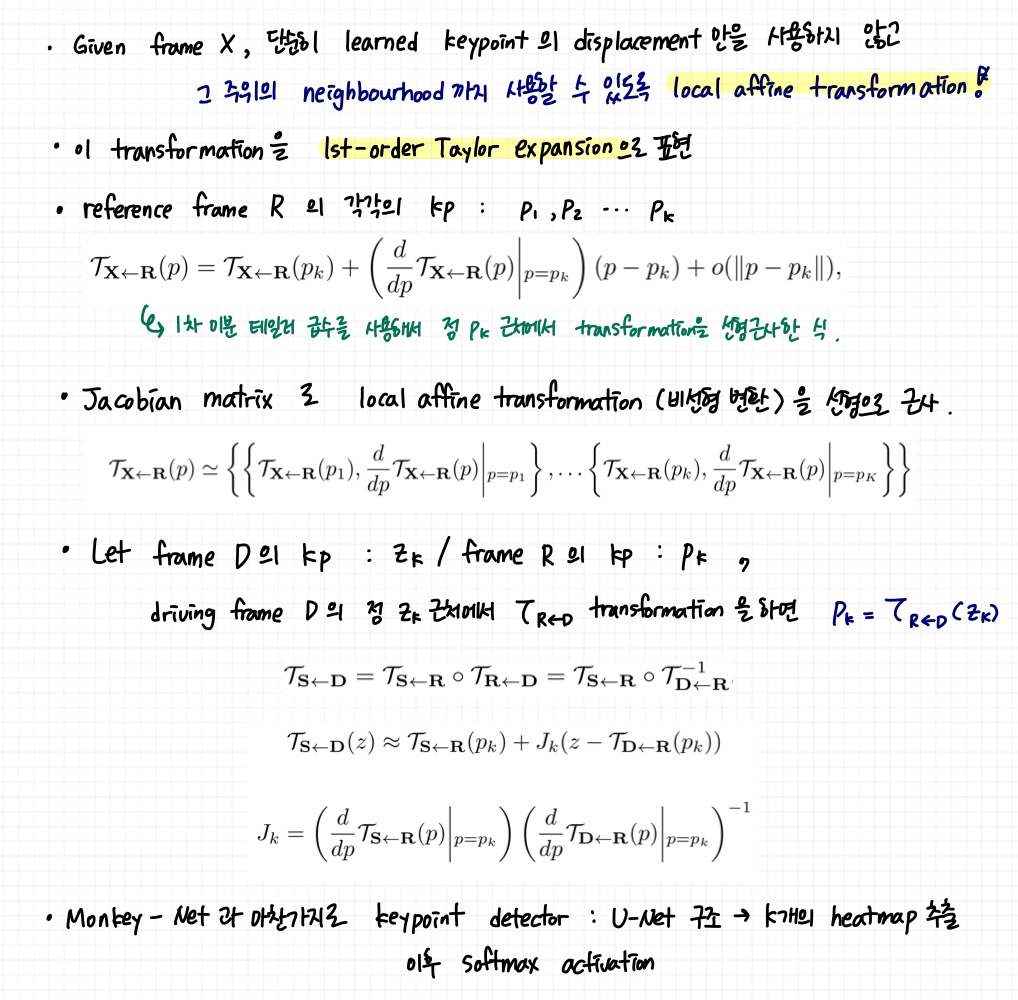 • Given frame X, 단순히 learned keypoint 의 displacement 만을 사용하지 않고
그 주위의 neighbourhood 까지 사용할 수 있도록 local affine transformation!
• 이 transformation을 1st-order Taylor expansion으로 표현
• reference frame R 의 각각의 kp : P₁, P₂ ... Pₖ
𝒯_{X←R}(p) = 𝒯_{X←R}(p_k) + (d/dp 𝒯_{X←R}(p)|_{p=p_k}) (p − p_k) + o(‖p − p_k‖),
↳ 1차 미분 테일러 급수를 사용해서 점 Pₖ 근처에서 transformation을 선형근사한 식.
• Jacobian matrix 로 local affine transformation (비선형 변환) 을 선형으로 근사.
𝒯_{X←R}(p) ≃ {{𝒯_{X←R}(p_1), d/dp 𝒯_{X←R}(p)|_{p=p_1}}, ... {𝒯_{X←R}(p_k), d/dp 𝒯_{X←R}(p)|_{p=p_K}}}
• Let frame D의 kp : Zₖ / frame R 의 kp : Pₖ ,
driving frame D 의 점 Zₖ 근처에서 𝒯_{R←D} transformation 을 하면 Pₖ = 𝒯_{R←D}(Zₖ)
𝒯_{S←D} = 𝒯_{S←R} ∘ 𝒯_{R←D} = 𝒯_{S←R} ∘ 𝒯_{D←R}^{−1}
𝒯_{S←D}(z) ≈ 𝒯_{S←R}(p_k) + J_k(z − 𝒯_{D←R}(p_k))
J_k = (d/dp 𝒯_{S←R}(p)|_{p=p_k}) (d/dp 𝒯_{D←R}(p)|_{p=p_k})^{−1}
• Monkey-Net 과 마찬가지로 keypoint detector : U-Net 구조 → K개의 heatmap 추출
이후 softmax activation